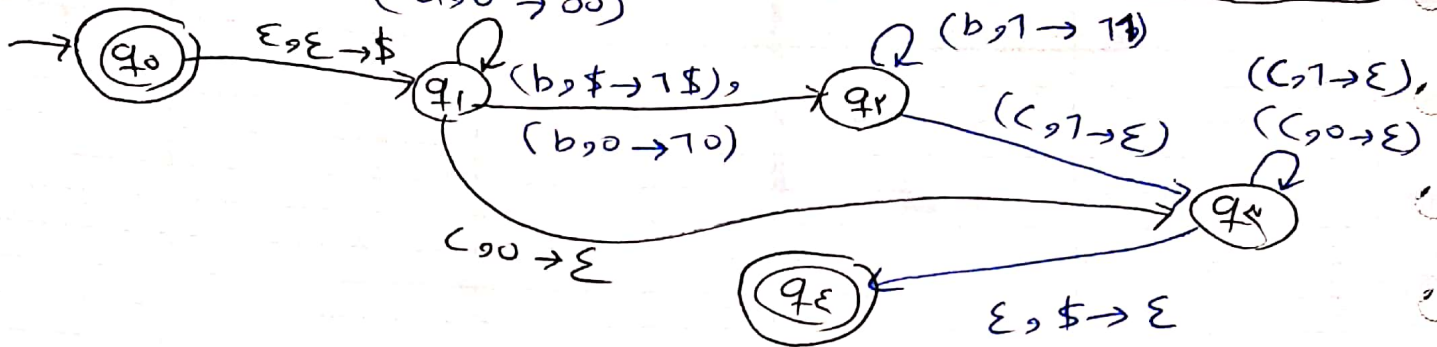 (a,0→00)
q₀
ε,ε→$
q₁
(b,$→1$),
(b,0→10)
q۲
(b,1→11)
(C,1→ε)
(C,1→ε),
(C,0→ε)
q۳
C,0→ε
q٤
ε,$→ε